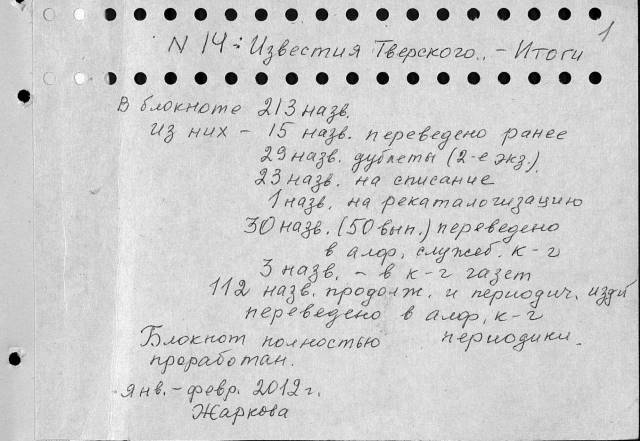 1
N 14: Известия Тверского.. - Итоги
В блокноте 213 назв.
из них - 15 назв. переведено ранее
29 назв. дублеты (2-е экз.)
23 назв. на списание
1 назв. на рекаталогизацию
30 назв. (50 вып.) переведено
в алф. служеб. к-г
3 назв. - в к-г газет
112 назв. продолж. и периодич. изд
переведено в алф. к-г
Блокнот полностью периодики.
проработан.
янв. - февр. 2012 г.
Жаркова